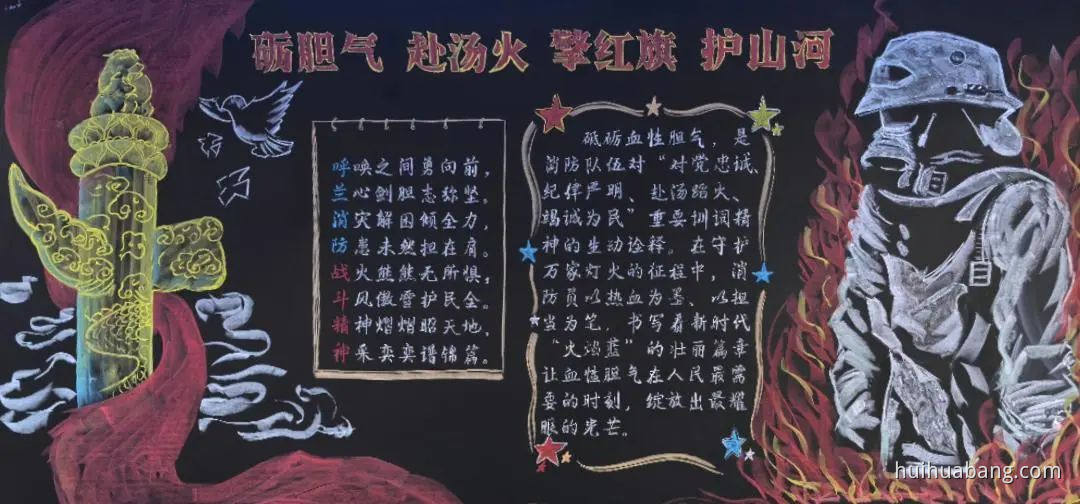 砺胆气 赴汤火 擎红旗 护山河
呼唤之间勇向前，
兰心剑胆志弥坚。
消灾解困倾全力，
防患未然担在肩。
战火熊熊无所惧，
斗风傲雪护民全。
精神熠熠昭天地，
神采奕奕谱锦篇。
砥砺血性胆气，是
消防队伍对“对党忠诚、
纪律严明、赴汤蹈火、
竭诚为民”重要训词精
神的生动诠释。在守护
万家灯火的征程中，消
防员以热血为墨、以担
当为笔，书写着新时代
“火焰蓝”的壮丽篇章
让血性胆气在人民最需
要的时刻，绽放出最耀
眼的光芒。
huihuabang.com